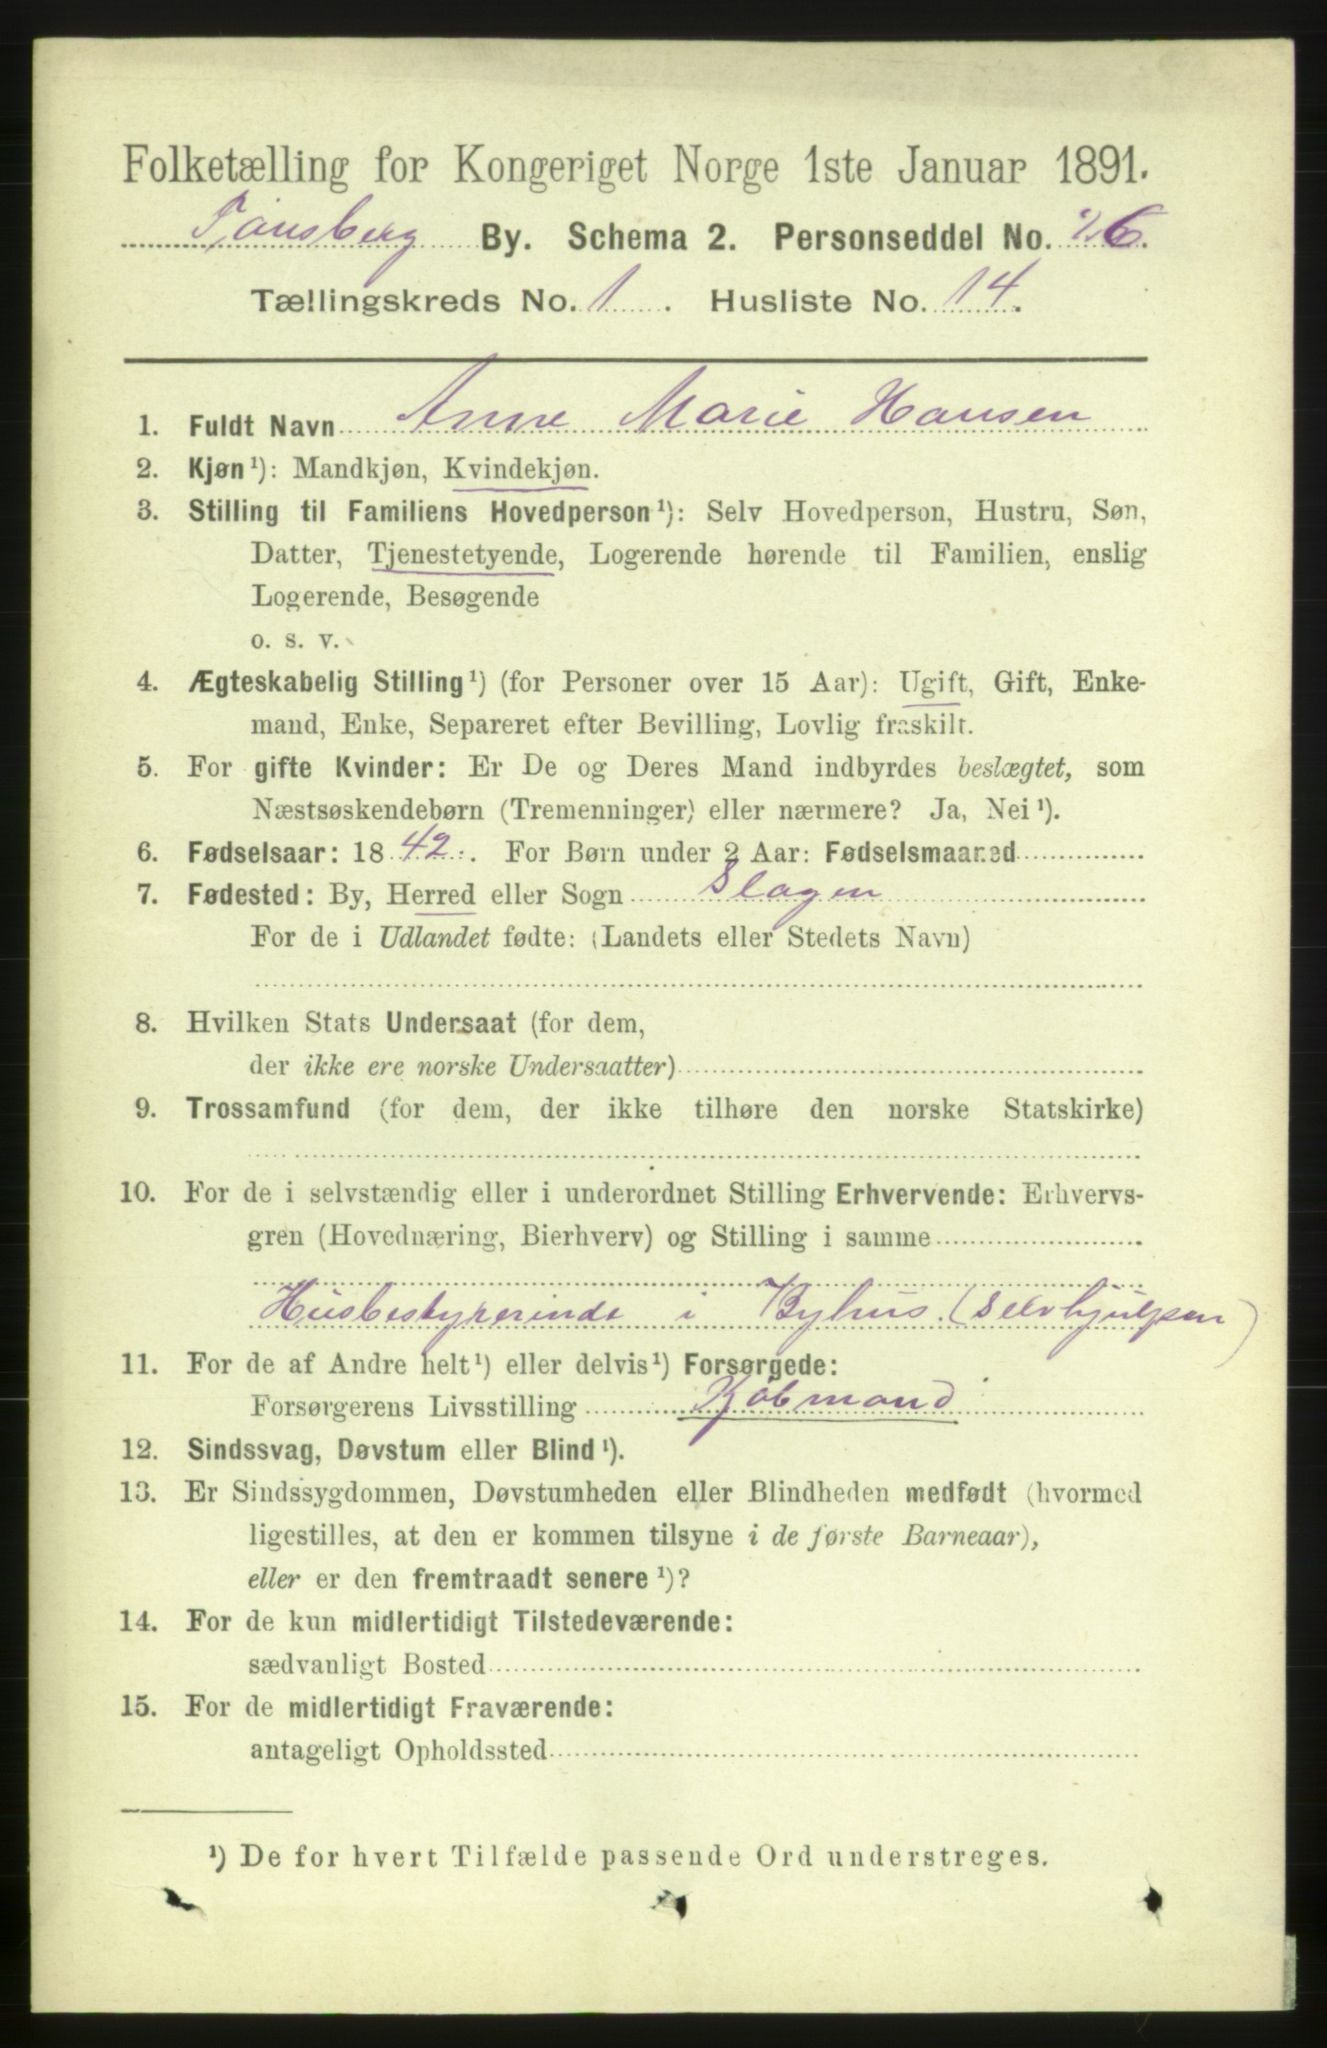 Folketælling for Kongeriget Norge 1ste Januar 1891.
Tønsberg By. Schema 2. Personseddel No. 26.
Tællingskreds No. 1. Husliste No. 14.
1. Fuldt Navn Anne Marie Hansen
2. Kjøn¹): Mandkjøn, Kvindekjøn.
3. Stilling til Familiens Hovedperson¹): Selv Hovedperson, Hustru, Søn,
Datter, Tjenestetyende, Logerende hørende til Familien, enslig
Logerende, Besøgende
o. s. v.
4. Ægteskabelig Stilling¹) (for Personer over 15 Aar): Ugift, Gift, Enke-
mand, Enke, Separeret efter Bevilling, Lovlig fraskilt.
5. For gifte Kvinder: Er De og Deres Mand indbyrdes beslægtet, som
Næstsøskendebørn (Tremenninger) eller nærmere? Ja, Nei¹).
6. Fødselsaar: 1842. For Børn under 2 Aar: Fødselsmaaned
7. Fødested: By, Herred eller Sogn Slagen
For de i Udlandet fødte: (Landets eller Stedets Navn)
8. Hvilken Stats Undersaat (for dem,
der ikke ere norske Undersaatter)
9. Trossamfund (for dem, der ikke tilhøre den norske Statskirke)
10. For de i selvstændig eller i underordnet Stilling Erhvervende: Erhvervs-
gren (Hovednæring, Bierhverv) og Stilling i samme
Husbestyrerinde i Byhus. (selvhjulpen)
11. For de af Andre helt¹) eller delvis¹) Forsørgede:
Forsørgerens Livsstilling Kjøbmand
12. Sindssvag, Døvstum eller Blind¹).
13. Er Sindssygdommen, Døvstumheden eller Blindheden medfødt (hvormed
ligestilles, at den er kommen tilsyne i de første Barneaar),
eller er den fremtraadt senere¹)?
14. For de kun midlertidigt Tilstedeværende:
sædvanligt Bosted
15. For de midlertidigt Fraværende:
antageligt Opholdssted
¹) De for hvert Tilfælde passende Ord understreges.